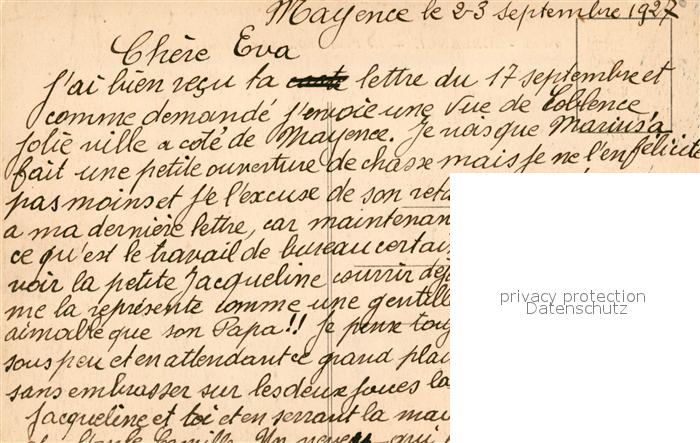 Mayence le 23 septembre 1927
Chère Eva
J'ai bien reçu ta carte lettre du 17 septembre et
comme demandé j'envoie une vue de Coblence
jolie ville a coté de Mayence. Je vois que Marius a
fait une petite ouverture de chasse mais je ne l'en félicite
pas moins et je l'excuse de son reta
a ma dernière lettre, car maintenan
ce qu'est le travail de bureau certai
voir la petite Jacqueline courrir dej
me la représente comme une gentill
aimable que son Papa!! Je pense touj
sous peu et en attendant ce grand plai
sans embrasser sur les deux joues la
Jacqueline et toi et en serrant la mai
privacy protection
Datenschutz